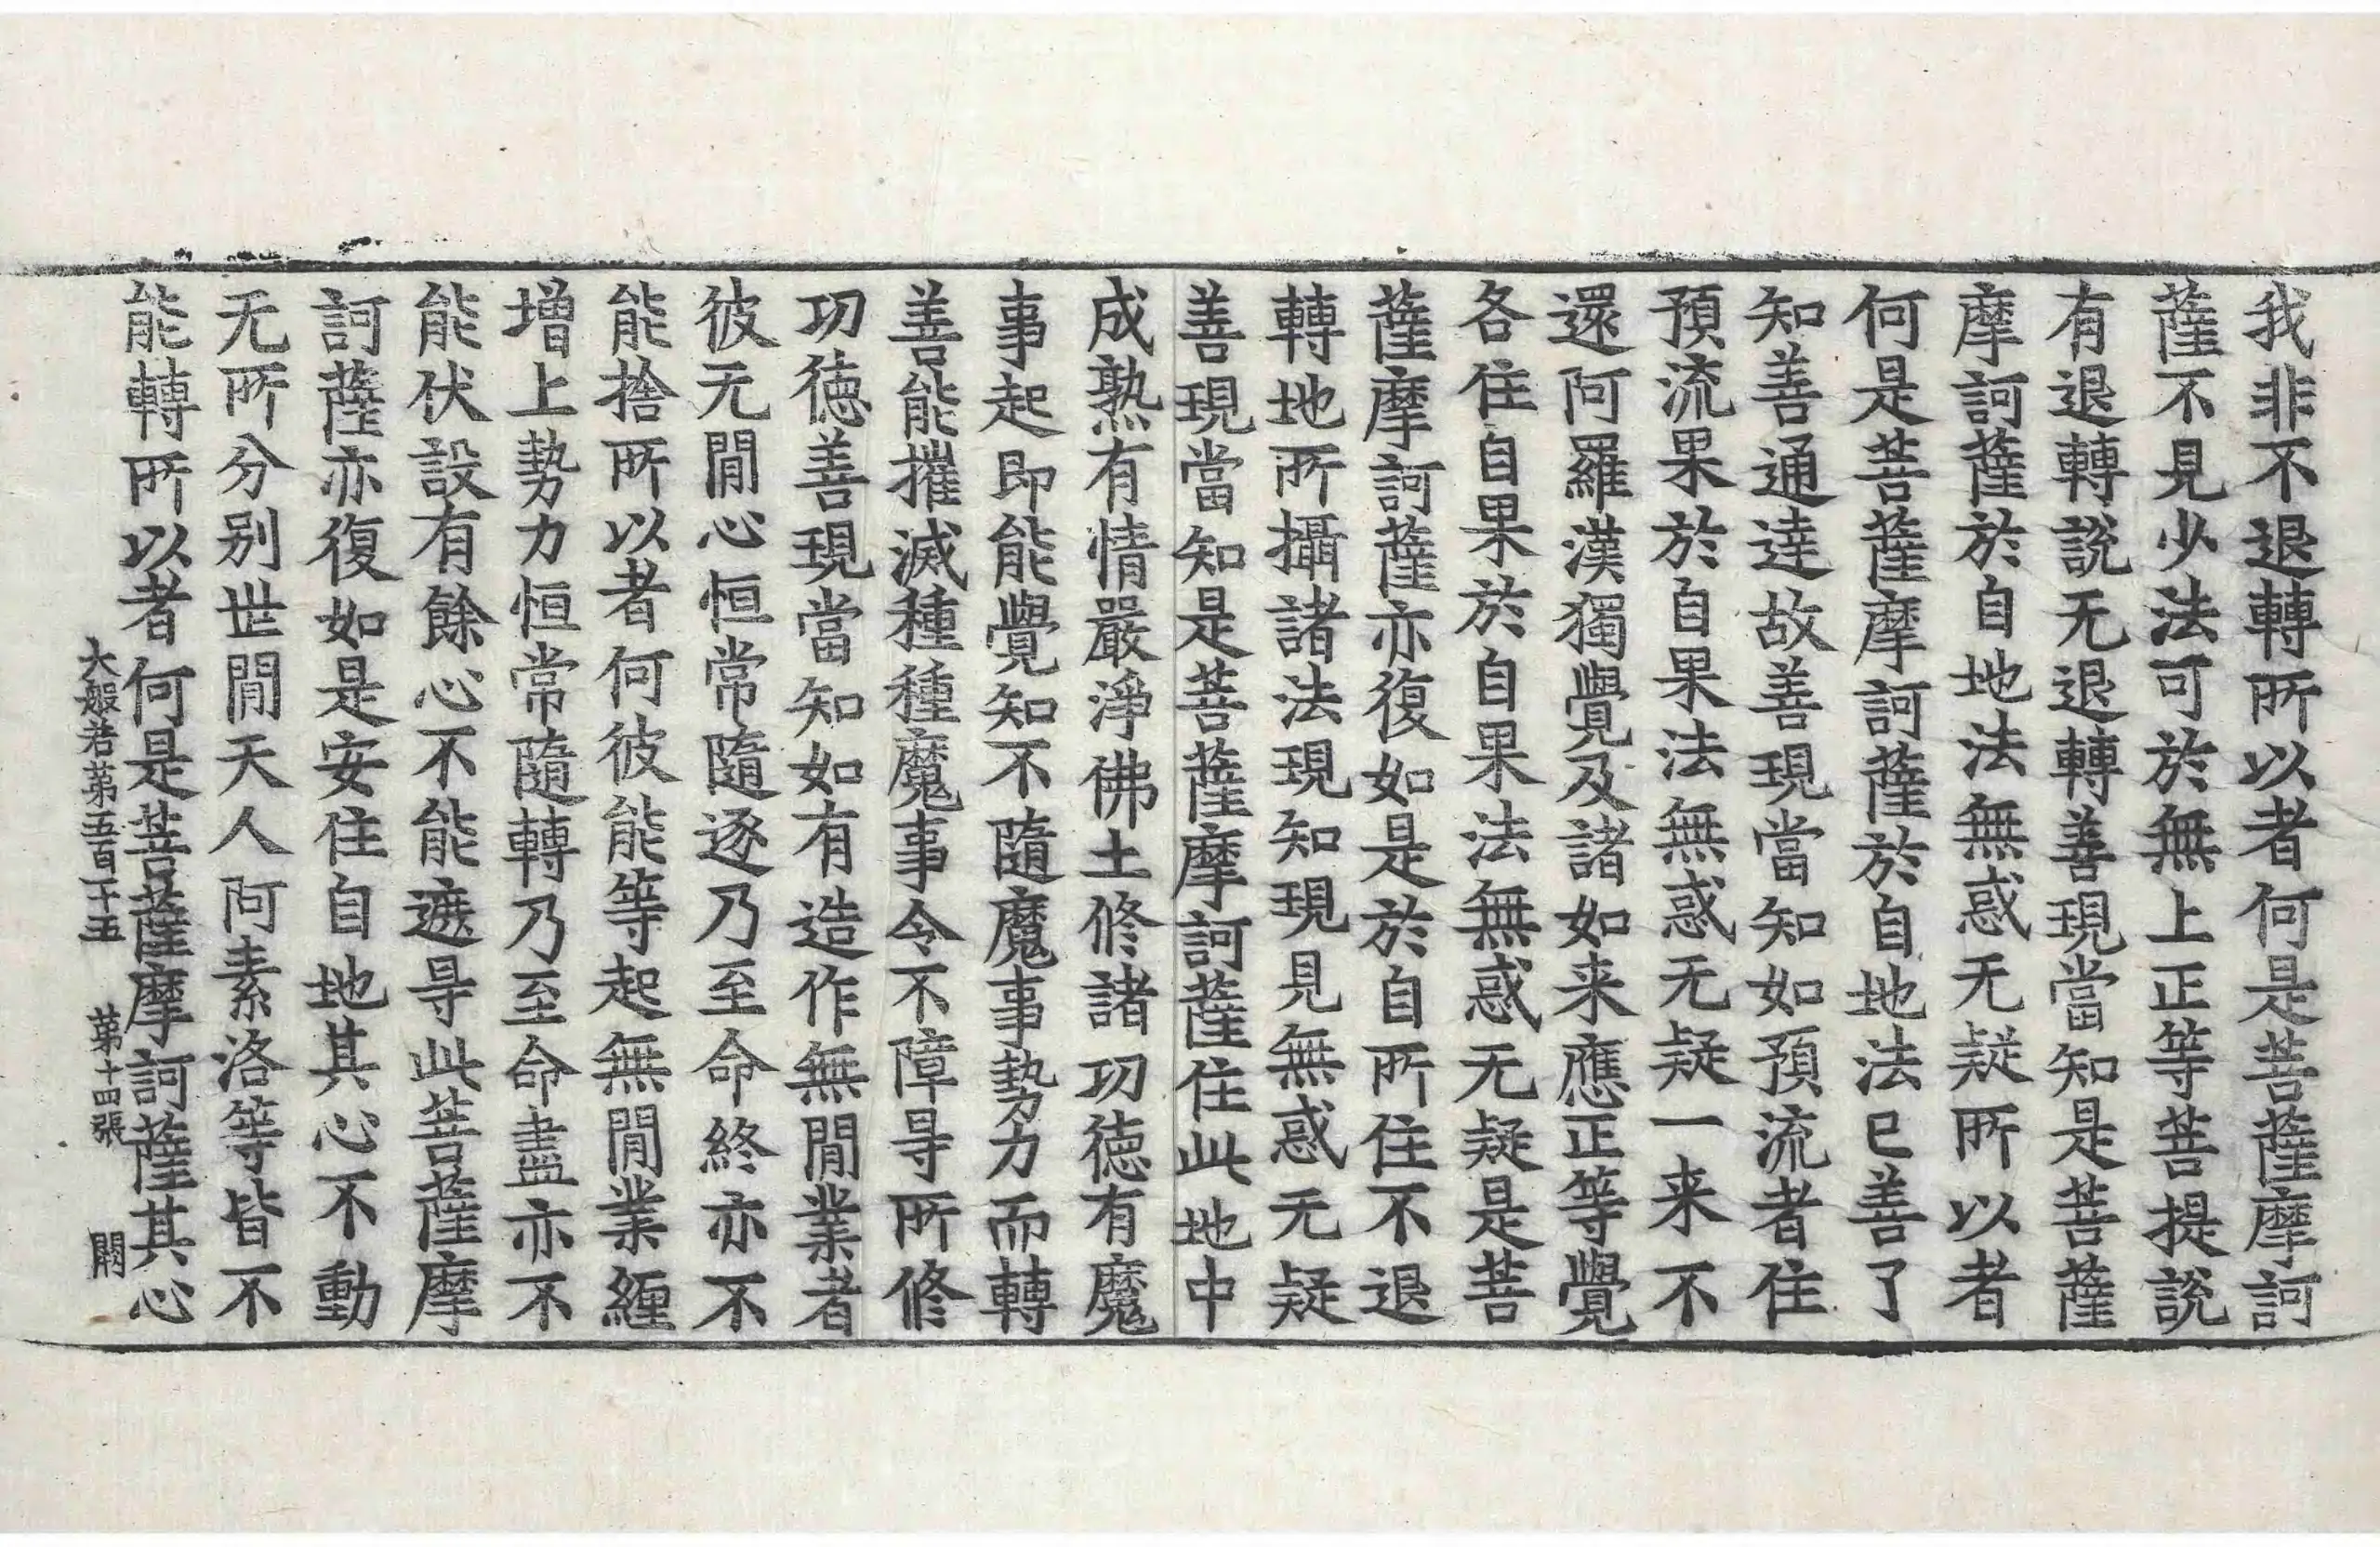 我非不退轉所以者何是菩薩摩訶
薩不見少法可於無上正等菩提說
有退轉說无退轉善現當知是菩薩
摩訶薩於自地法無惑无疑所以者
何是菩薩摩訶薩於自地法已善了
知善通達故善現當知如預流者住
預流果於自果法無惑无疑一来不
還阿羅漢獨覺及諸如来應正等覺
各住自果於自果法無惑无疑是菩
薩摩訶薩亦復如是於自所住不退
轉地所攝諸法現知現見無惑无疑
善現當知是菩薩摩訶薩住此地中
成熟有情嚴淨佛土修諸功德有魔
事起即能覺知不隨魔事勢力而轉
善能摧滅種種魔事令不障㝵所修
功德善現當知如有造作無閒業者
彼无閒心恒常隨逐乃至命終亦不
能捨所以者何彼能等起無閒業纏
增上勢力恒常隨轉乃至命盡亦不
能伏設有餘心不能遮㝵此菩薩摩
訶薩亦復如是安住自地其心不動
无所分别世閒天人阿素洛等皆不
能轉所以者何是菩薩摩訶薩其心
大般若第五百十五 第十四張 闕